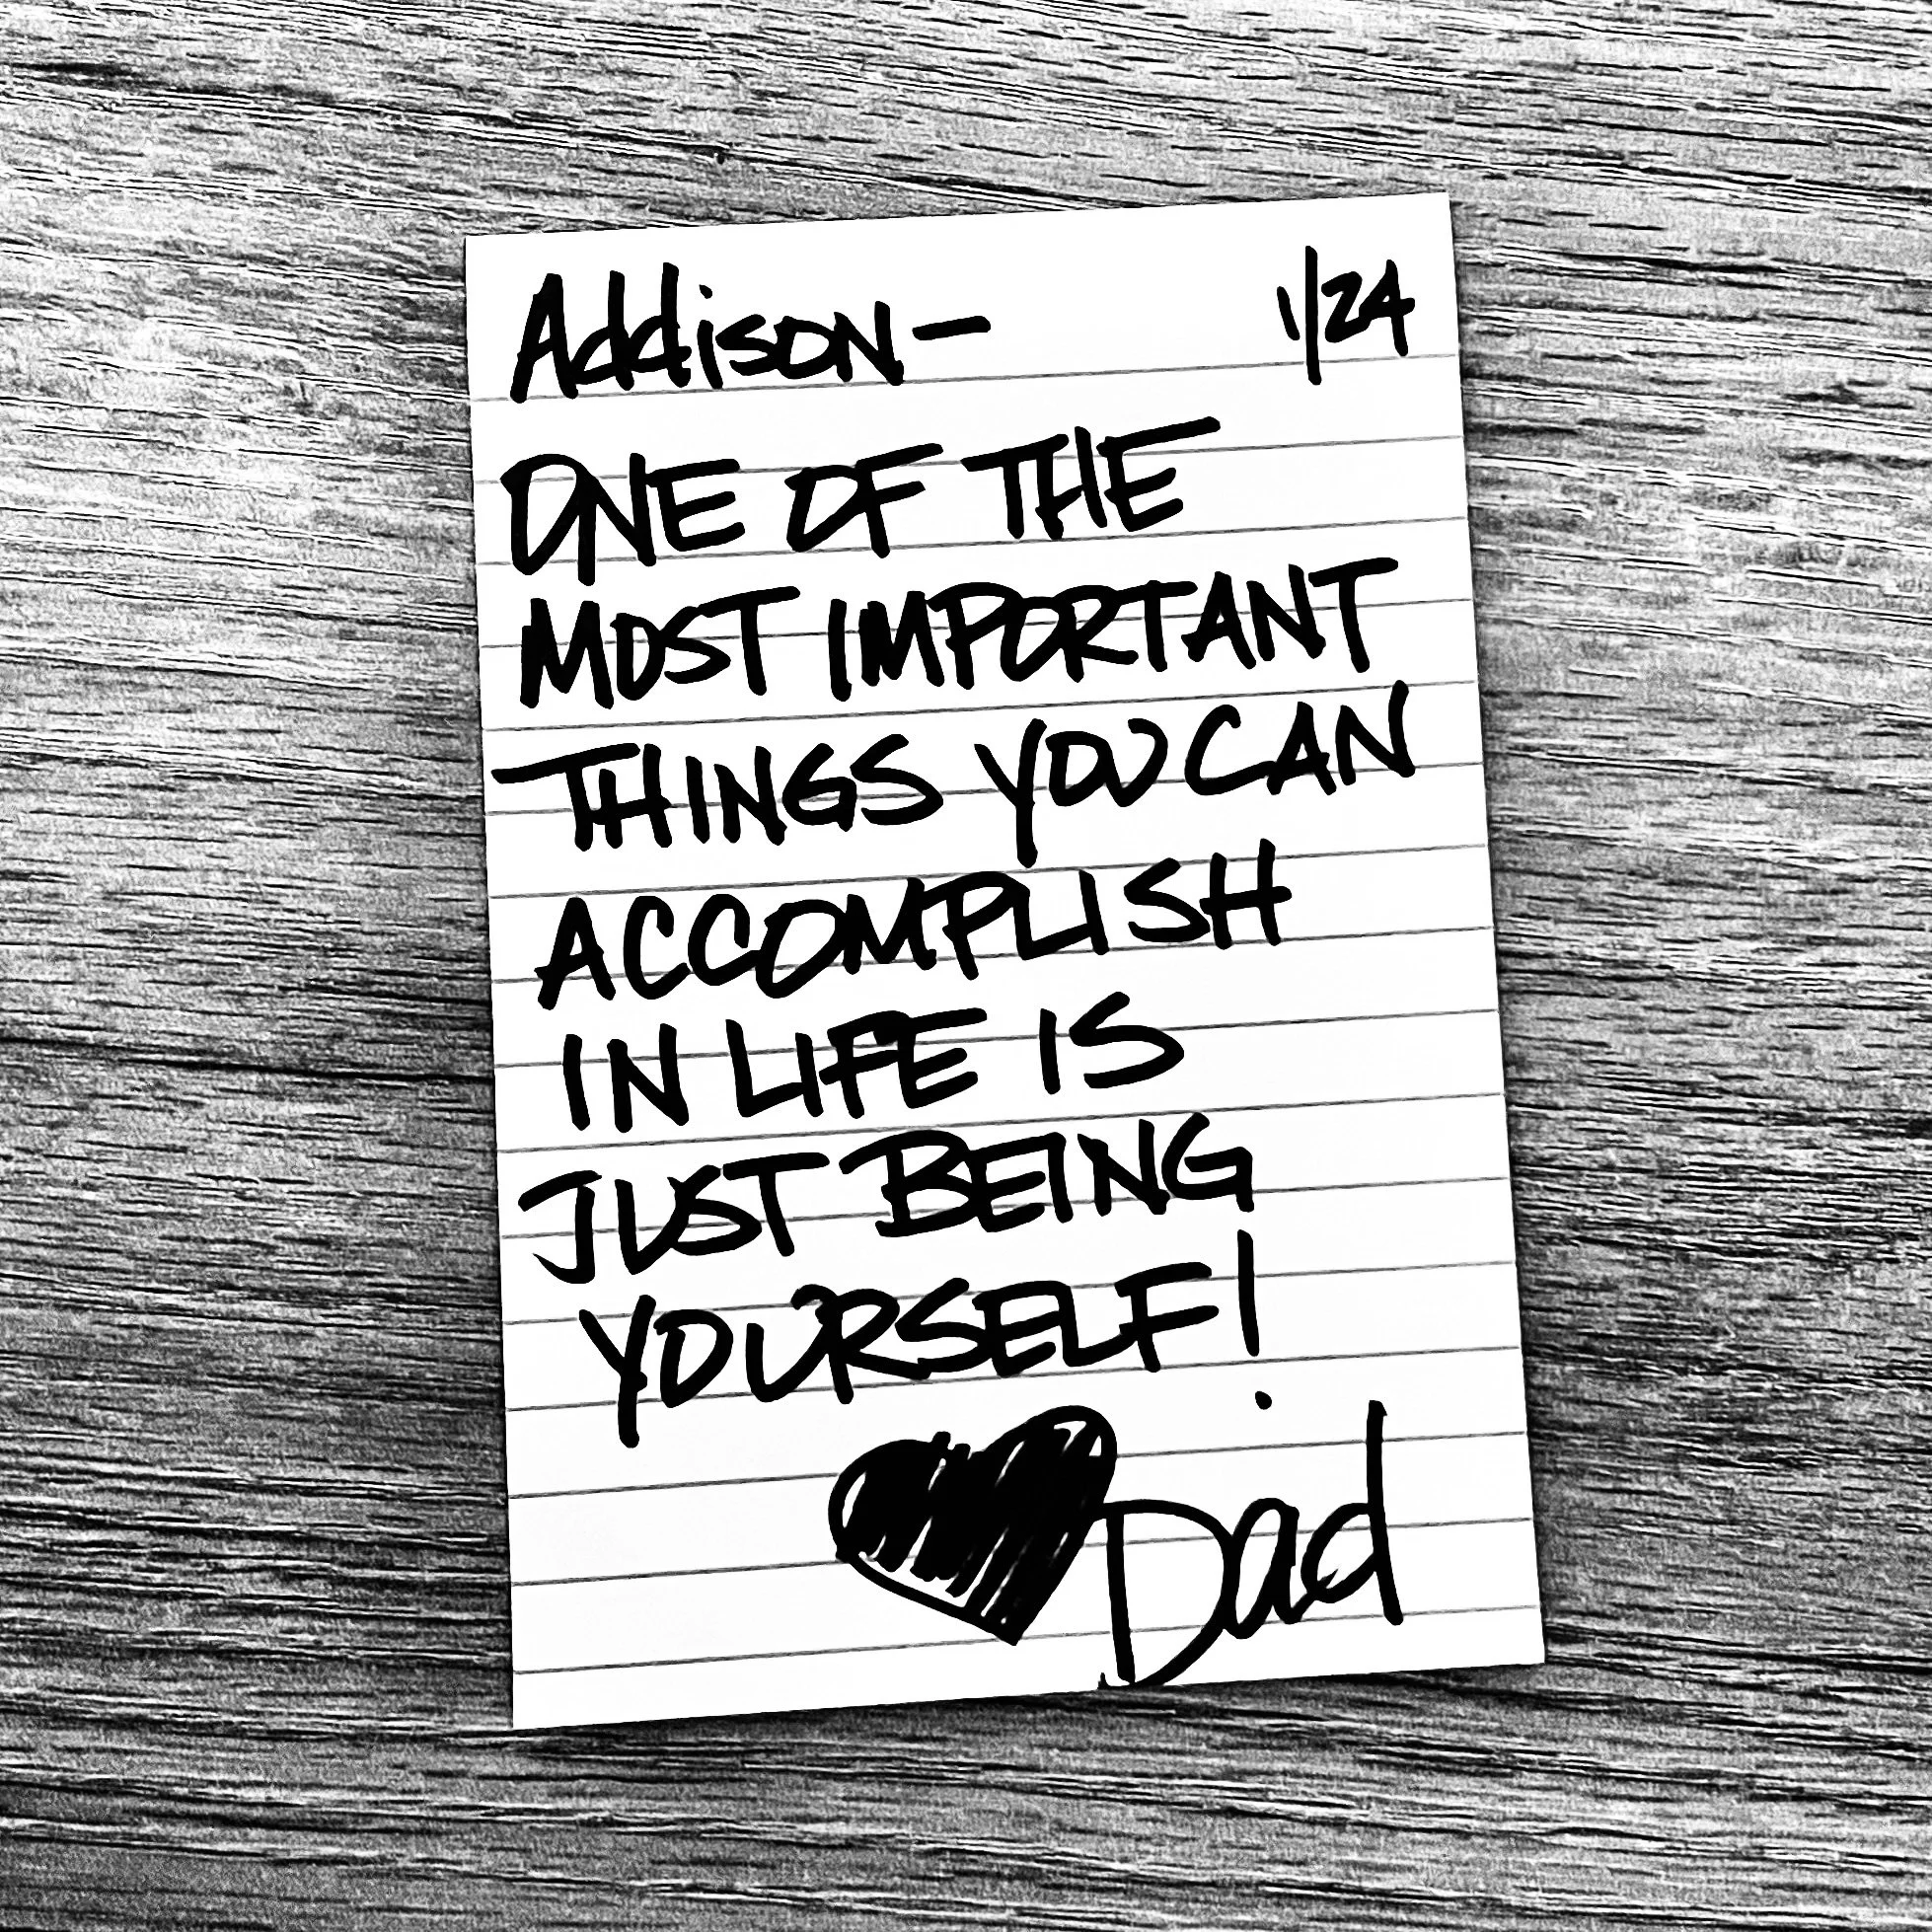 Addison- 1/24
ONE OF THE
MOST IMPORTANT
THINGS YOU CAN
ACCOMPLISH
IN LIFE IS
JUST BEING
YOURSELF!
Dad